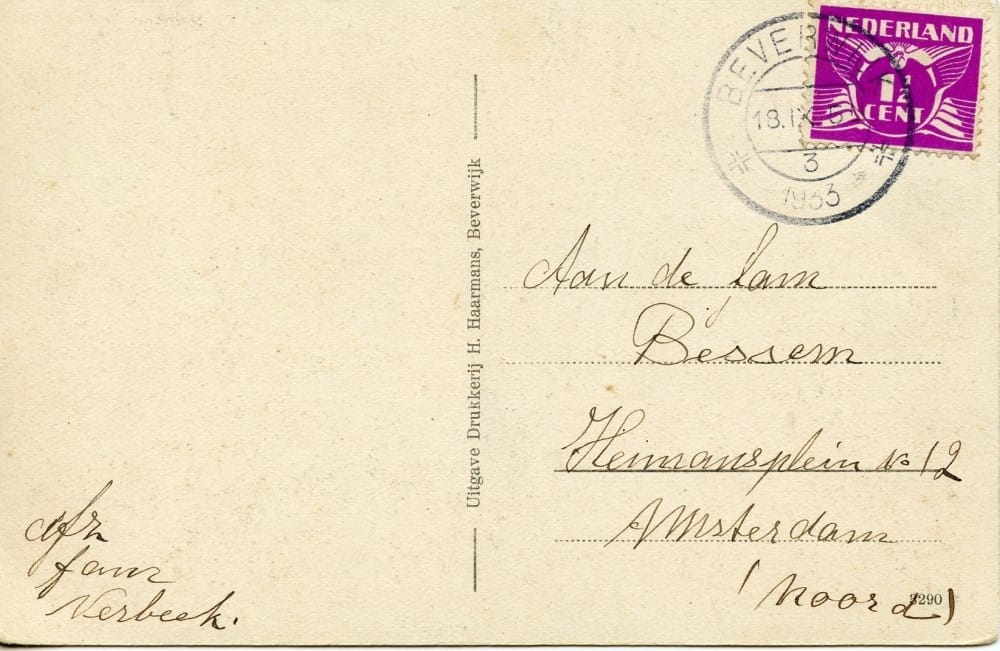 NEDERLAND
1½
CENT
BEVERWIJK
18.IX
3
1933
Uitgave Drukkerij H. Haarmans, Beverwijk
Aan de fam
Bessem
Heimansplein no 12
Amsterdam
(Noord)
3290
afz
fam
Verbeek.